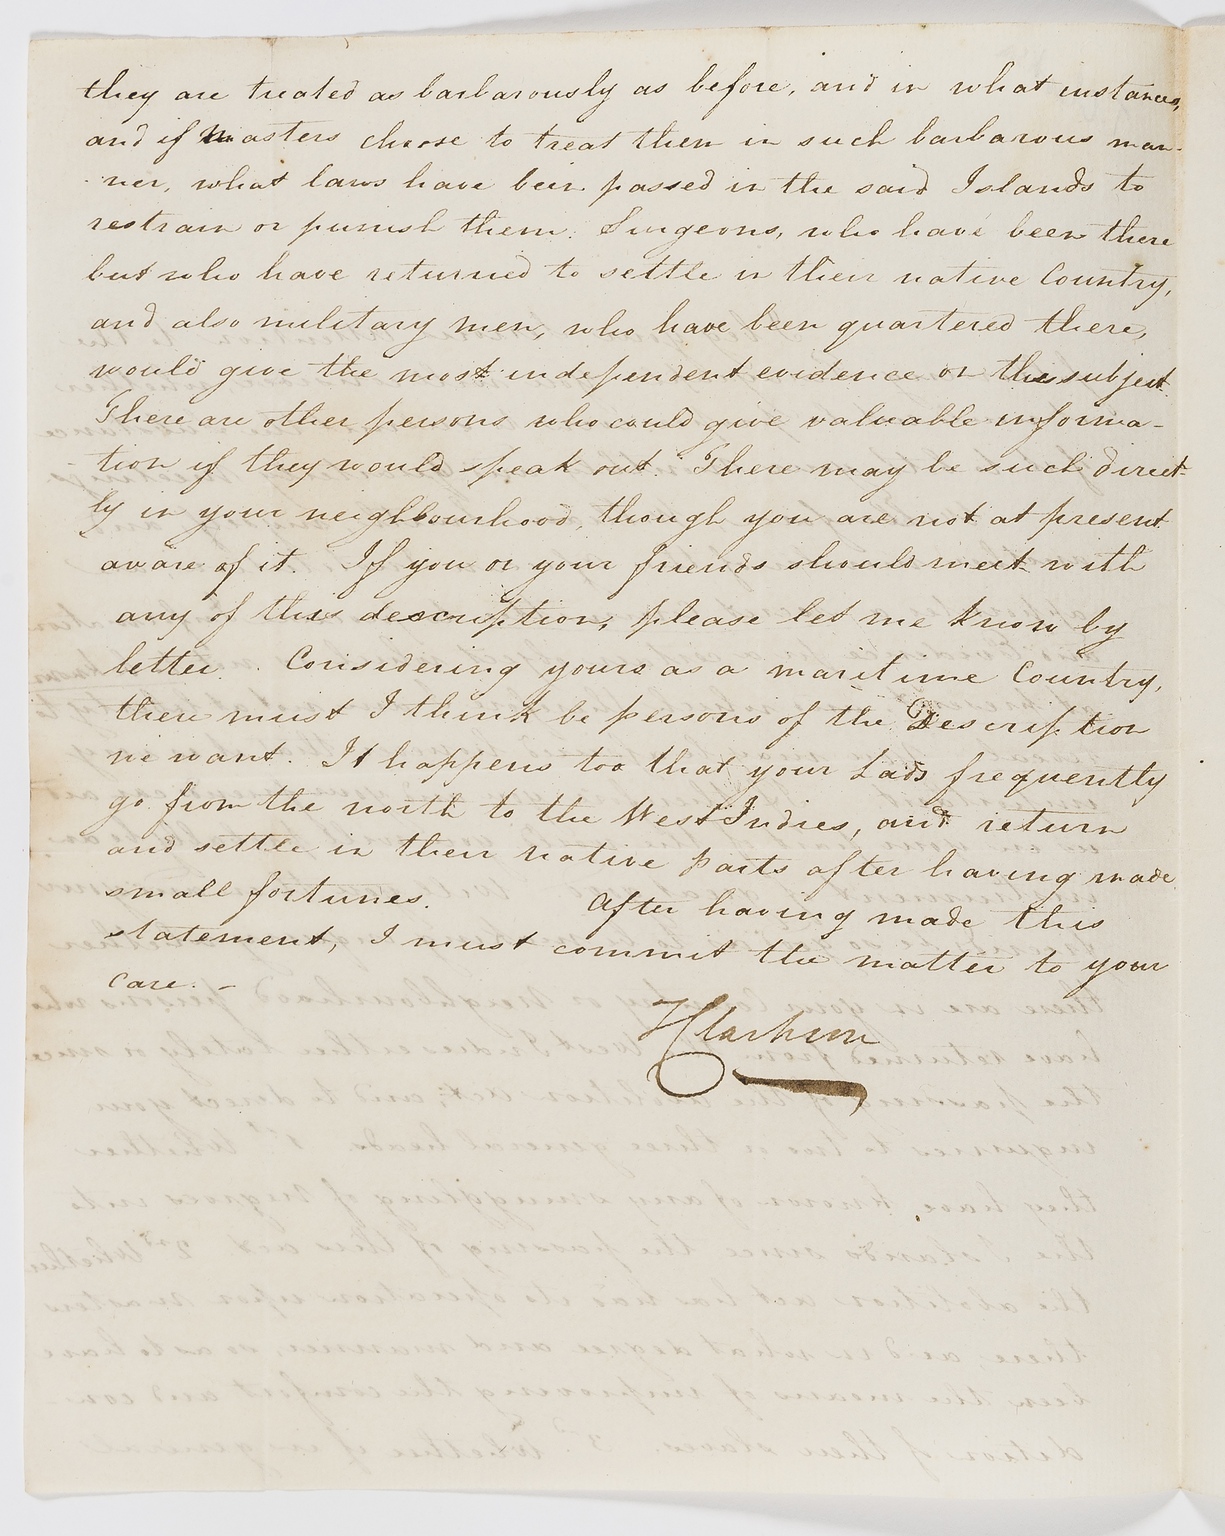 they are treated as barbarously as before, and in what instances,
and if Masters choose to treat them in such barbarous man-
ner, what laws have been passed in the said Islands to
restrain or punish them. Surgeons, who have been there
but who have returned to settle in their native Country,
and also military men, who have been quartered there,
would give the most independent evidence on this subject.
There are other persons who could give valuable informa-
tion if they would speak out. There may be such direct-
ly in your neighbourhood, though you are not at present
aware of it. If you or your friends should meet with
any of this description, please let me know by
letter. Considering yours as a maritime Country,
there must I think be persons of the Description
we want. It happens too that your Lads frequently
go from the north to the West Indies, and return
and settle in their native parts after having made
small fortunes. After having made this
statement, I must commit the matter to your
care. -
T Clarkson